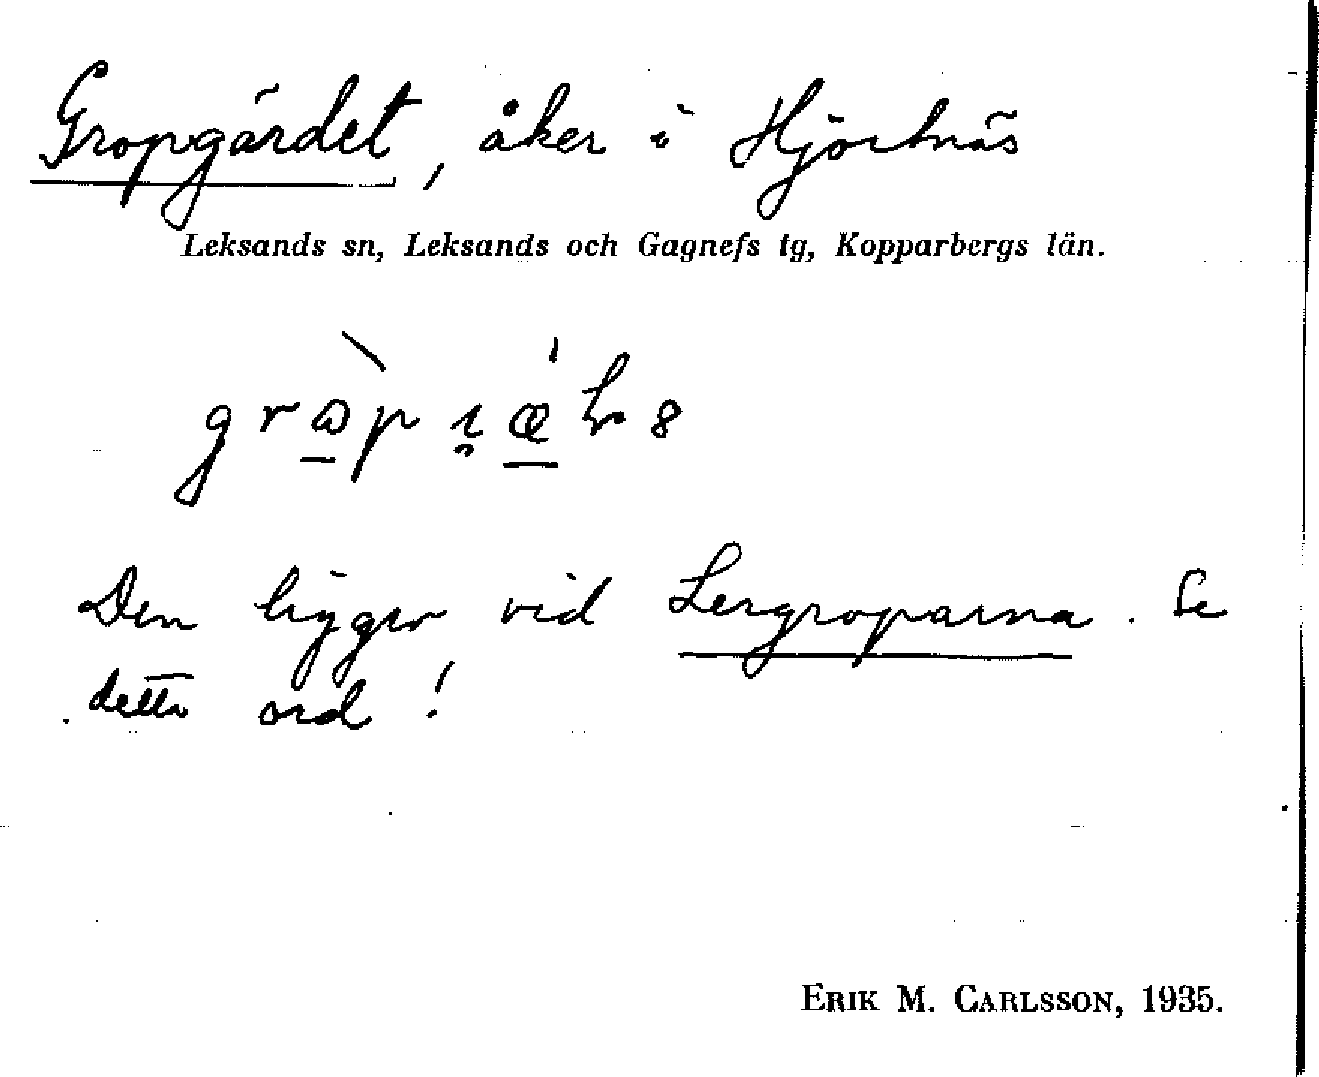 Gropgärdet, åker i Hjortnäs
Leksands sn, Leksands och Gagnefs tg, Kopparbergs län.
Den ligger vid Lergroparna. Se
detta ord!
ERIK M. CARLSSON, 1935.